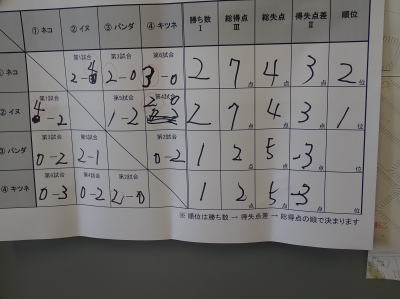 ① ネコ ② イヌ ③ パンダ ④ キツネ 勝ち数 Ⅰ 総得点 Ⅲ 総失点 得失点差 Ⅱ 順位
① ネコ 第1試合 2-4 第3試合 2-0 第6試合 3-0 2 7点 4点 3点 2位
② イヌ 第1試合 4-2 第5試合 1-2 2 0 2 7点 4点 3点 1位
③ パンダ 第3試合 0-2 2-1 第2試合 0-2 1 2点 5点 -3点 位
④ キツネ 第6試合 0-3 第4試合 0-2 第2試合 2-0 1 2点 5点 -3点 位
※ 順位は勝ち数 → 得失点差 → 総得点の順で決まります